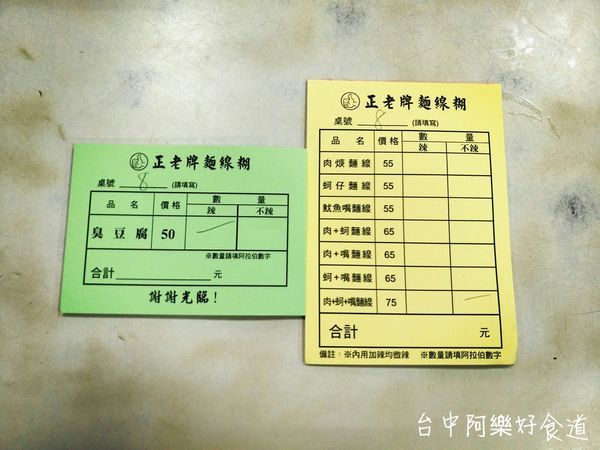 正老牌麵線糊
桌號 8 (請填寫)
品名 價格 數量
辣 不辣
臭豆腐 50
※數量請填阿拉伯數字
合計 元
謝謝光臨!
正老牌麵線糊
桌號 8 (請填寫)
品名 價格 數量
辣 不辣
肉焿麵線 55
蚵仔麵線 55
魷魚嘴麵線 55
肉+蚵麵線 65
肉+嘴麵線 65
蚵+嘴麵線 65
肉+蚵+嘴麵線 75
合計 元
備註:※內用加辣均微辣 ※數量請填阿拉伯數字
台中阿樂好食道